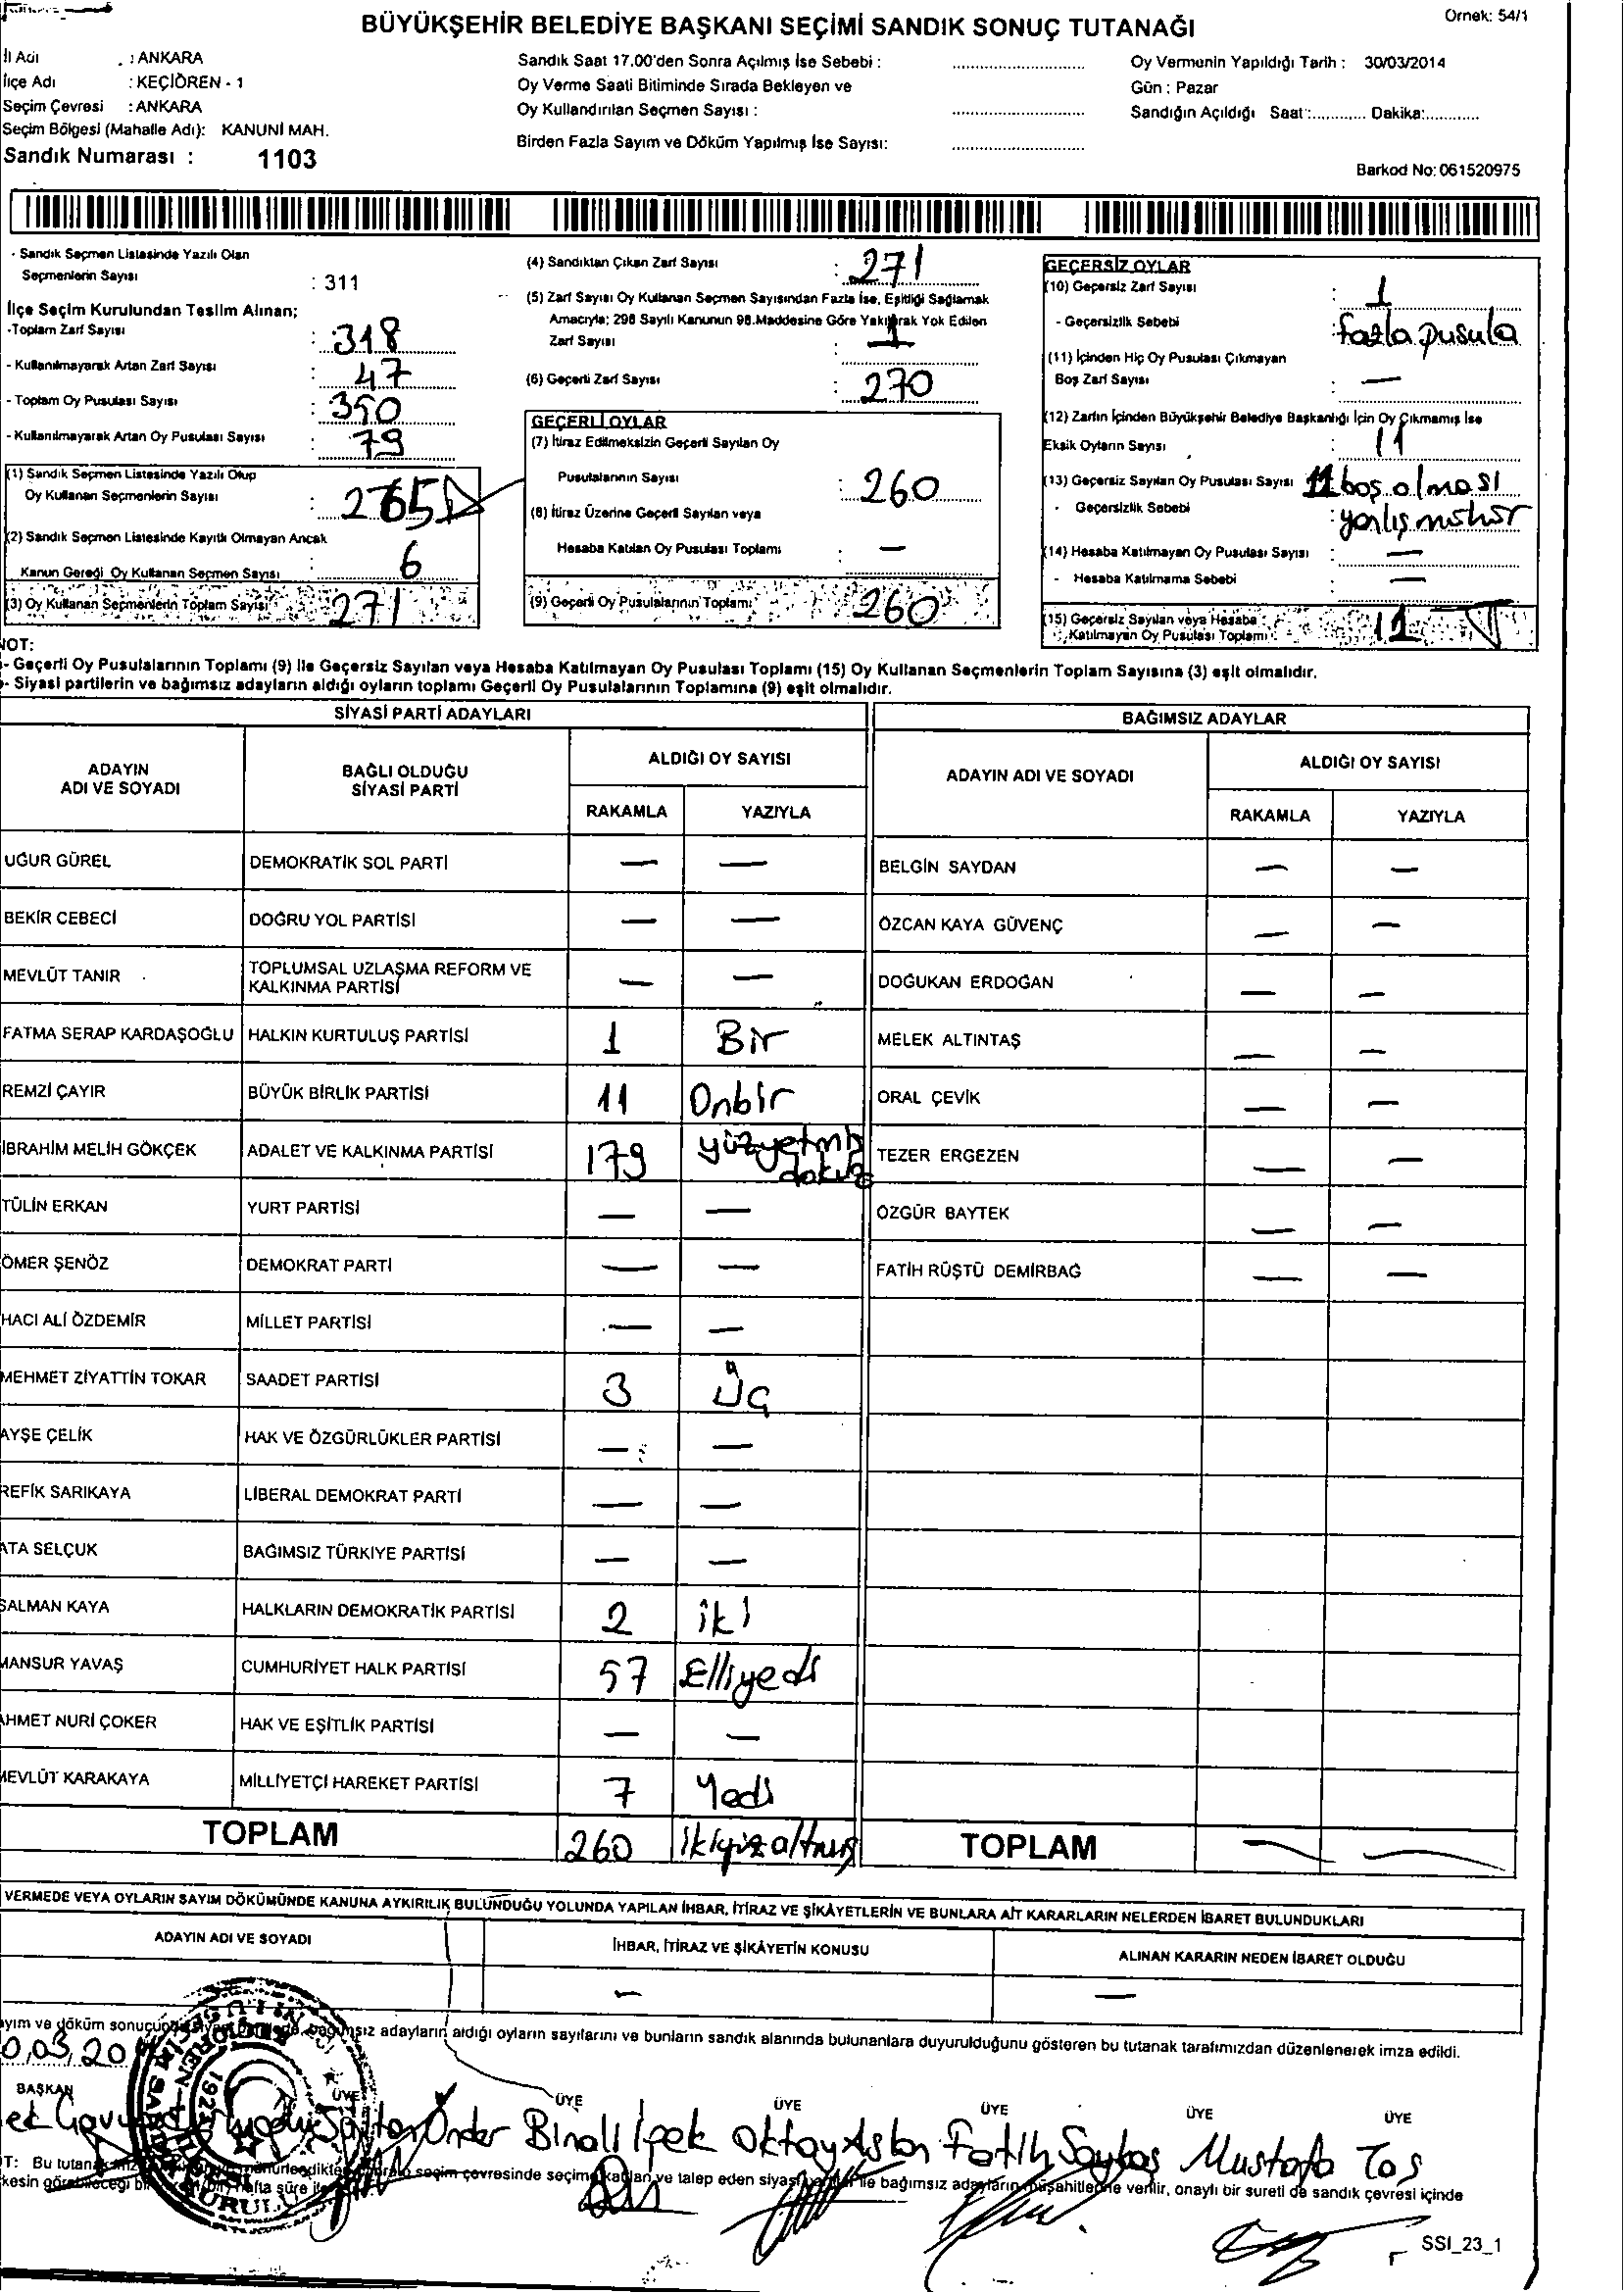 Örnek: 54/1
BÜYÜKŞEHİR BELEDİYE BAŞKANI SEÇİMİ SANDIK SONUÇ TUTANAĞI
İl Adı : ANKARA
İlçe Adı : KEÇİÖREN - 1
Seçim Çevresi : ANKARA
Seçim Bölgesi (Mahalle Adı): KANUNİ MAH.
Sandık Numarası : 1103
Sandık Saat 17.00'den Sonra Açılmış İse Sebebi :
Oy Verme Saati Bitiminde Sırada Bekleyen ve
Oy Kullandırılan Seçmen Sayısı :
Birden Fazla Sayım ve Döküm Yapılmış İse Sayısı:
Oy Vermenin Yapıldığı Tarih : 30/03/2014
Gün : Pazar
Sandığın Açıldığı Saat :............ Dakika:............
Barkod No: 061520975
- Sandık Seçmen Listesinde Yazılı Olan
Seçmenlerin Sayısı : 311
İlçe Seçim Kurulundan Teslim Alınan;
-Toplam Zarf Sayısı : 318
- Kullanılmayarak Artan Zarf Sayısı : 47
- Toplam Oy Pusulası Sayısı : 350
- Kullanılmayarak Artan Oy Pusulası Sayısı : 79
(1) Sandık Seçmen Listesinde Yazılı Olup
Oy Kullanan Seçmenlerin Sayısı : 265
(2) Sandık Seçmen Listesinde Kayıtlı Olmayan Ancak
Kanun Gereği Oy Kullanan Seçmen Sayısı : 6
(3) Oy Kullanan Seçmenlerin Toplam Sayısı : 271
(4) Sandıktan Çıkan Zarf Sayısı : 271
(5) Zarf Sayısı Oy Kullanan Seçmen Sayısından Fazla İse, Eşitliği Sağlamak
Amacıyla; 298 Sayılı Kanunun 98.Maddesine Göre Yakılarak Yok Edilen
Zarf Sayısı : 1
(6) Geçerli Zarf Sayısı : 270
GEÇERLİ OYLAR
(7) İtiraz Edilmeksizin Geçerli Sayılan Oy
Pusulalarının Sayısı : 260
(8) İtiraz Üzerine Geçerli Sayılan veya
Hesaba Katılan Oy Pusulası Toplamı : —
(9) Geçerli Oy Pusulalarının Toplamı : 260
GEÇERSİZ OYLAR
(10) Geçersiz Zarf Sayısı : 1
- Geçersizlik Sebebi : fazla pusula
(11) İçinden Hiç Oy Pusulası Çıkmayan
Boş Zarf Sayısı : —
(12) Zarfın İçinden Büyükşehir Belediye Başkanlığı İçin Oy Çıkmamış İse
Eksik Oyların Sayısı : 11
(13) Geçersiz Sayılan Oy Pusulası Sayısı 11 boş olması
- Geçersizlik Sebebi : yanlış mühür
(14) Hesaba Katılmayan Oy Pusulası Sayısı : —
- Hesaba Katılmama Sebebi : —
(15) Geçersiz Sayılan veya Hesaba
Katılmayan Oy Pusulası Toplamı : 11
NOT:
- Geçerli Oy Pusulalarının Toplamı (9) ile Geçersiz Sayılan veya Hesaba Katılmayan Oy Pusulası Toplamı (15) Oy Kullanan Seçmenlerin Toplam Sayısına (3) eşit olmalıdır.
- Siyasi partilerin ve bağımsız adayların aldığı oyların toplamı Geçerli Oy Pusulalarının Toplamına (9) eşit olmalıdır.
SİYASİ PARTİ ADAYLARI
ADAYIN ADI VE SOYADI BAĞLI OLDUĞU SİYASİ PARTİ ALDIĞI OY SAYISI
RAKAMLA YAZIYLA
UĞUR GÜREL DEMOKRATİK SOL PARTİ — —
BEKİR CEBECİ DOĞRU YOL PARTİSİ — —
MEVLÜT TANIR TOPLUMSAL UZLAŞMA REFORM VE KALKINMA PARTİSİ — —
FATMA SERAP KARDAŞOĞLU HALKIN KURTULUŞ PARTİSİ 1 Bir
REMZİ ÇAYIR BÜYÜK BİRLİK PARTİSİ 11 Onbir
İBRAHİM MELİH GÖKÇEK ADALET VE KALKINMA PARTİSİ 179 yüzyetmiş dokuz
TÜLİN ERKAN YURT PARTİSİ — —
ÖMER ŞENÖZ DEMOKRAT PARTİ — —
HACI ALİ ÖZDEMİR MİLLET PARTİSİ — —
MEHMET ZİYATTİN TOKAR SAADET PARTİSİ 3 Üç
AYŞE ÇELİK HAK VE ÖZGÜRLÜKLER PARTİSİ — —
REFİK SARIKAYA LİBERAL DEMOKRAT PARTİ — —
ATA SELÇUK BAĞIMSIZ TÜRKİYE PARTİSİ — —
SALMAN KAYA HALKLARIN DEMOKRATİK PARTİSİ 2 iki
MANSUR YAVAŞ CUMHURİYET HALK PARTİSİ 57 Elliyedi
AHMET NURİ ÇOKER HAK VE EŞİTLİK PARTİSİ — —
MEVLÜT KARAKAYA MİLLİYETÇİ HAREKET PARTİSİ 7 Yedi
TOPLAM 260 ikiyüzaltmış
BAĞIMSIZ ADAYLAR
ADAYIN ADI VE SOYADI ALDIĞI OY SAYISI
RAKAMLA YAZIYLA
BELGİN SAYDAN — —
ÖZCAN KAYA GÜVENÇ — —
DOĞUKAN ERDOĞAN — —
MELEK ALTINTAŞ — —
ORAL ÇEVİK — —
TEZER ERGEZEN — —
ÖZGÜR BAYTEK — —
FATİH RÜŞTÜ DEMİRBAĞ — —
TOPLAM — —
VERMEDE VEYA OYLARIN SAYIM DÖKÜMÜNDE KANUNA AYKIRILIK BULUNDUĞU YOLUNDA YAPILAN İHBAR, İTİRAZ VE ŞİKÂYETLERİN VE BUNLARA AİT KARARLARIN NELERDEN İBARET BULUNDUKLARI
ADAYIN ADI VE SOYADI İHBAR, İTİRAZ VE ŞİKÂYETİN KONUSU ALINAN KARARIN NEDEN İBARET OLDUĞU
— —
ayım ve döküm sonucunda bağımsız adayların aldığı oyların sayılarını ve bunların sandık alanında bulunanlara duyurulduğunu gösteren bu tutanak tarafımızdan düzenlenerek imza edildi.
BAŞKAN ÜYE ÜYE ÜYE ÜYE ÜYE ÜYE
Önder Binali İpek Oktay Aslan Fatih Saybaş Mustafa Taş
T: Bu tutanak seçim çevresinde seçime katılan ve talep eden siyasi ile bağımsız adayların müşahitlerine verilir, onaylı bir sureti de sandık çevresi içinde
kesin görebileceği bir hafta süre ile
SSI_23_1